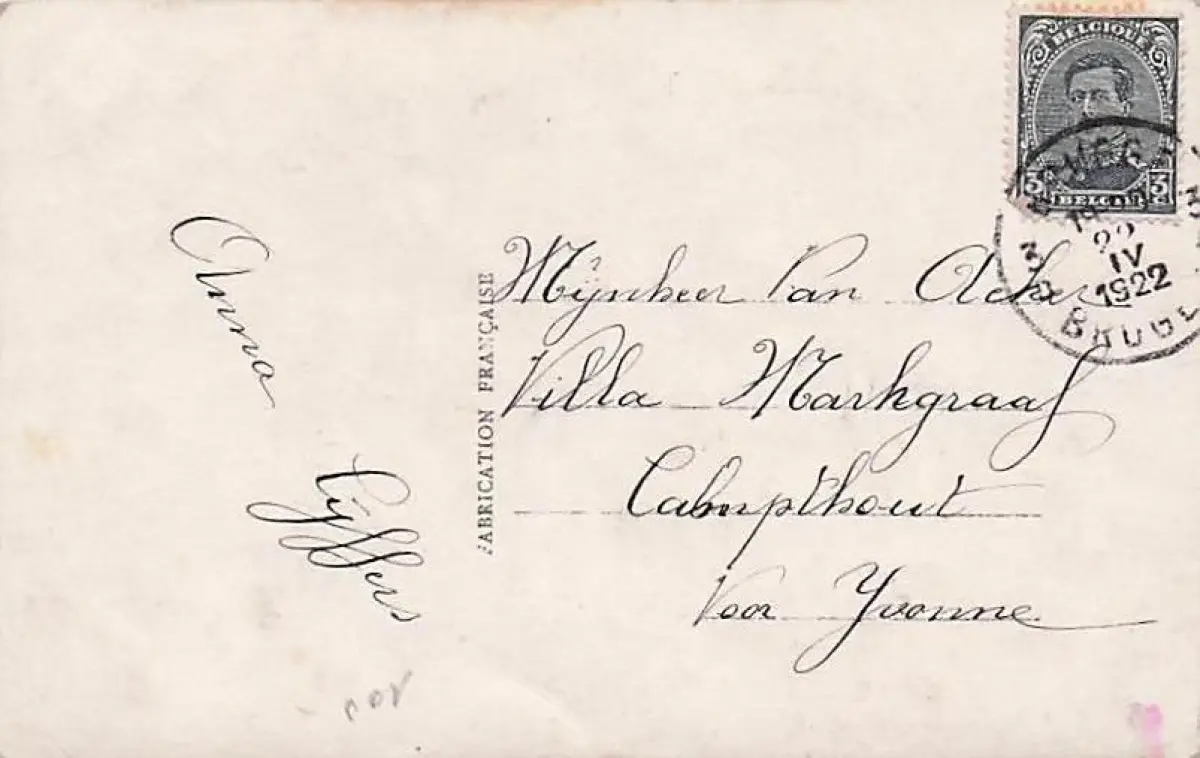 BELGIQUE
3 3
C
BELGIË
22
IV
1922
BRUGE
Anna
Cijffers
FABRICATION FRANÇAISE
Mijnheer Van Acker
Villa Markgraaf
Calmpthout
Voor Yvonne